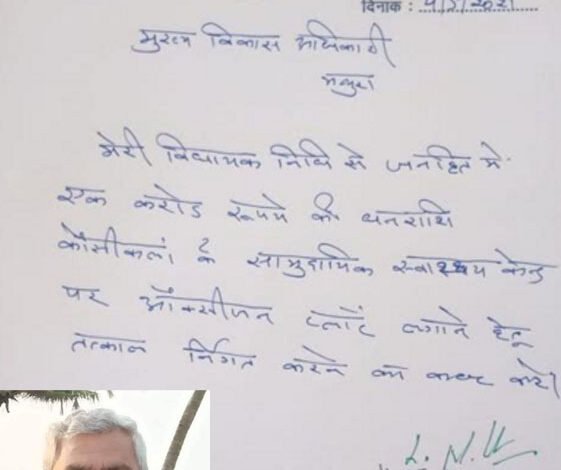 दिनाक :
मुख्य विकास अधिकारी
मथुरा
मेरी विधायक निधि से जनहित में
एक करोड रूपये की धनराशि
कोसीकलां के सामुदायिक स्वास्थ्य केन्द्र
पर ऑक्सीजन प्लांट लगाने हेतू
तत्काल निर्गत करने का कष्ट करें।